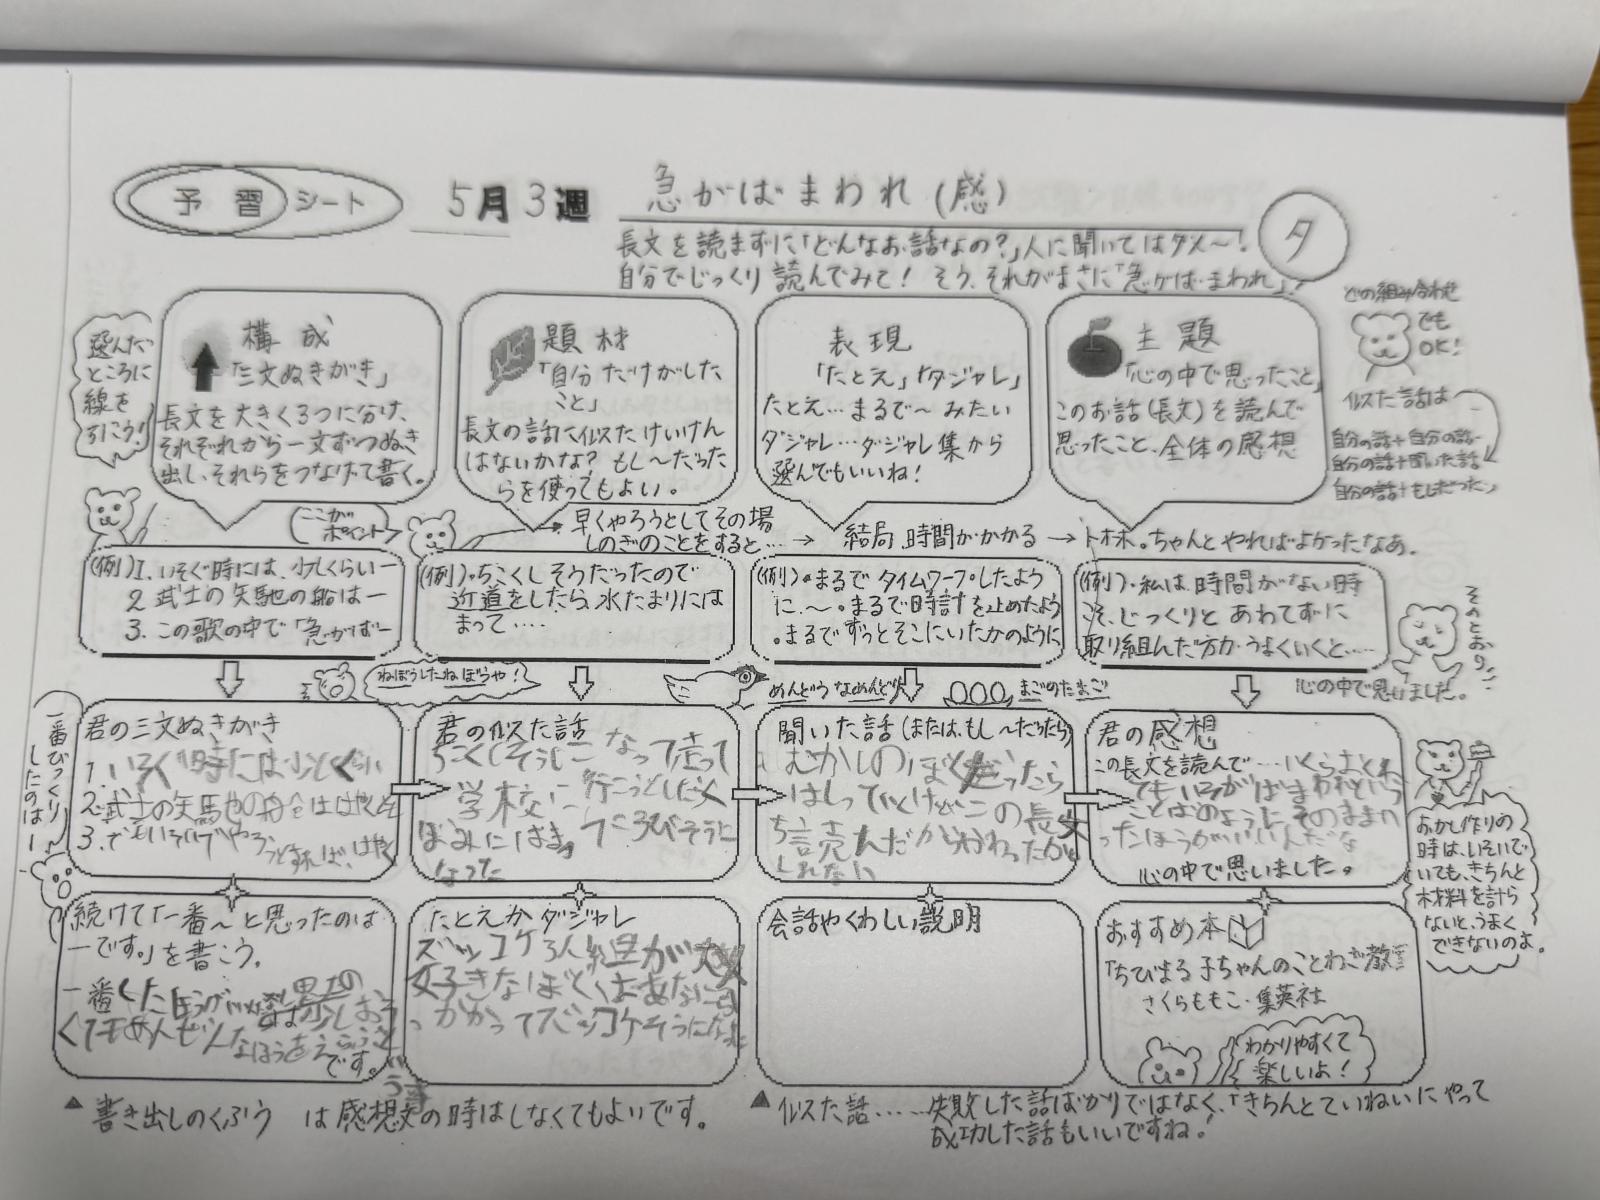 予習シート
5月3週
急がばまわれ(感)
タ
長文を読まずに「どんなお話なの?」人に聞いてはダメ〜!
自分でじっくり読んでみて! そう、それがまさに「急がば・まわれ」!
選んだ
ところに
線を
引こう!
構成
「三文ぬきがき」
長文を大きく3つに分け、
それぞれから一文ずつぬき
出し、それらをつなげて書く。
題材
「自分だけがした
こと」
長文の話に似たけいけん
はないかな? もし〜だった
らを使ってもよい。
表現
「たとえ」「ダジャレ」
たとえ…まるで〜みたい
ダジャレ…ダジャレ集から
選んでもいいね!
主題
「心の中で思ったこと」
このお話(長文)を読んで
思ったこと、全体の感想
どの組み合わせ
でも
OK!
似た話は
自分の話+自分の話
自分の話+聞いた話
自分の話+もしだったら
ここが
ポイント
早くやろうとしてその場
しのぎのことをすると…
→ 結局、時間がかかる → トホホ。ちゃんとやればよかったなあ。
(例)1. いそぐ時には、少しくらいー
2 武士の矢馳の船はー
3. この歌の中で「急がばー
(例)・ちこくしそうだったので
近道をしたら、水たまりには
まって‥‥
(例)・まるでタイムワープしたよう
に、〜。まるで時計を止めたよう
・まるでずっとそこにいたかのように
(例)・私は、時間がない時
こそ、じっくりとあわてずに
取り組んだ方がうまくいくと……
心の中で思いました。
そのとおり!
ねぼうしたねぼうや!
めんどうなめんどり
まごのたまご
一番びっくり
したのはー
君の三文ぬきがき
1. いそぐ時には少しくらい
2. 武士の矢馳の舟はははやくと
3. でもいそいでやろうとすれば、はやく
君の似た話
ちこくしそうになって走って
学校に行こうとしたらく
ぼみにはまってころびそうに
なった
聞いた話(または、もし〜だったら)
むかしのぼくだったら
はしっていくけどこの長文
を読んだから分わったかも
しれない
君の感想
この長文を読んで…いくらおくれ
てもいそがばまわれという
ことばのようにそのままい
ったほうがいいんだな
心の中で思いました。
おかし作りの
時は、いそいで
いても、きちんと
材料を計ら
ないと、うまく
できないのよ。
続けて「一番〜と思ったのは
ーです。」を書こう。
です。
たとえかダジャレ
ズッコケ3人組が大
好きなほど
会話やくわしい説明
おすすめ本
「ちびまる子ちゃんのことわざ教室
さくらももこ・集英社
わかりやすくて
楽しいよ!
▲書き出しのくふうは感想文の時はしなくてもよいです。
▲似た話……失敗した話ばかりではなく、「きちんとていねいにやって
成功した話もいいですね!